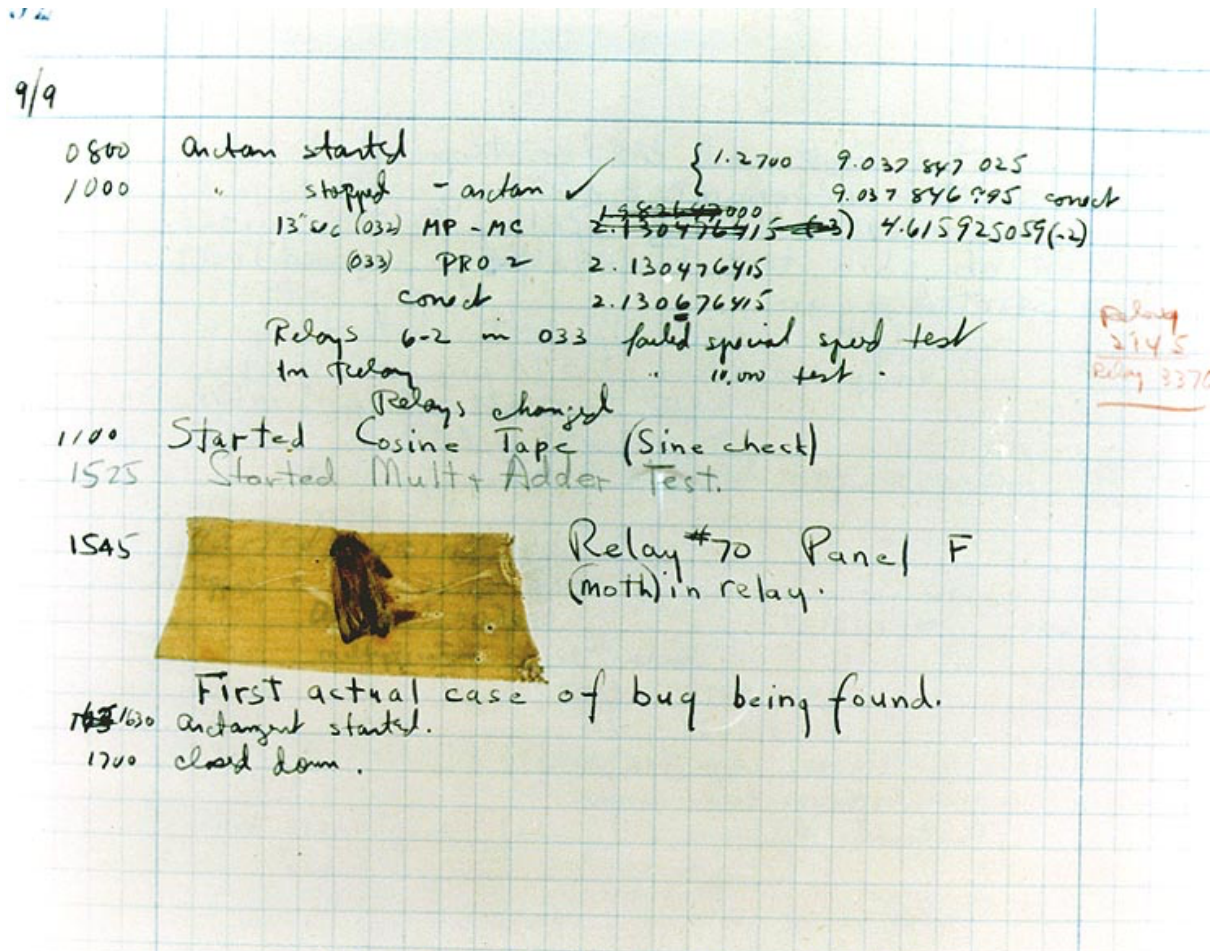 9/9
0800 arctan started { 1.2700 9.037 847 025
1000 " stopped - arctan ✓ 9.037 846 995 correct
13" (032) MP - MC 1.982647000 2.130476415 (-3) 4.615925059(-2)
(033) PRO 2 2.130476415
correct 2.130676415
Relays 6-2 in 033 failed special speed test
In Relay " 10,000 test.
Relay
2145
Relay 3370
Relays changed
1100 Started Cosine Tape (Sine check)
1525 Started Mult + Adder Test.
1545 Relay #70 Panel F
(moth) in relay.
First actual case of bug being found.
1630 arctangent started.
1700 closed down.